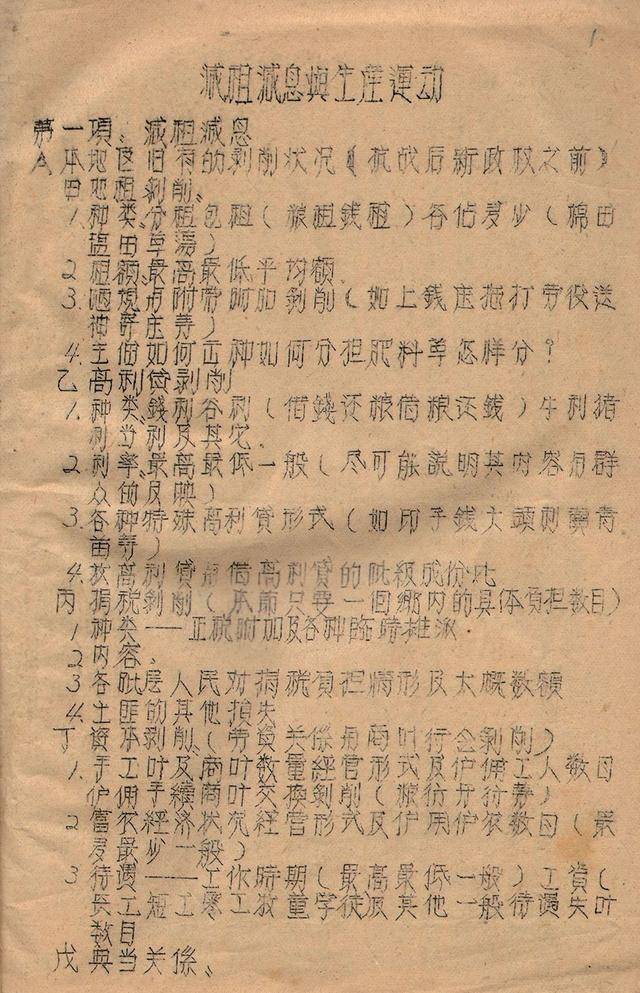 1
減租減息與生産運动
第一項、減租減息
A 本地区旧有的剥削状况（抗战后新政权之前）
甲 地租剥削、
1. 种类、分租包租（粮租錢租）各佔多少（棉田
盐田草蕩）
2 租額、最高最低平均額
3. 陋規与附带附加剥削（如上錢庄拖打劳役送
神寄庄寿）
4. 主佃如何正种如何分担肥料草怎样分？
乙 高利貸剥削
1. 种类、錢利谷利（借錢还粮借粮还錢）牛利猪
利当利及其它
2. 利率、最高最低一般（尽可能説明其内容与群
众的反映）
3. 各种特殊高利貸形式（如印子錢大頭利賣青
苗寿）
4. 放高利貸与借高利貸的阶級成份比
丙 捐税剥削（本節只要一個鄉内的具体負担数目）
1 种类——正税附加及各种臨時摊派
2 内容、
3 各阶层人民对捐税負担情形及大概数額
4. 土匪的其他損失
丁 資本剥削、（劳資关係与商叶行会剥削）
1. 手工叶及商叶数量經营形式及护佣工人数目
护佣手續商叶交換剥削（
2 富农經济状况經营形式及护用护农数目（最
多最少一般）
3 待遇——工作時期（最高最低一般）工資（
長工短工零工放童学徒及其他一般待遇失叶
数目
戊 典当关係、